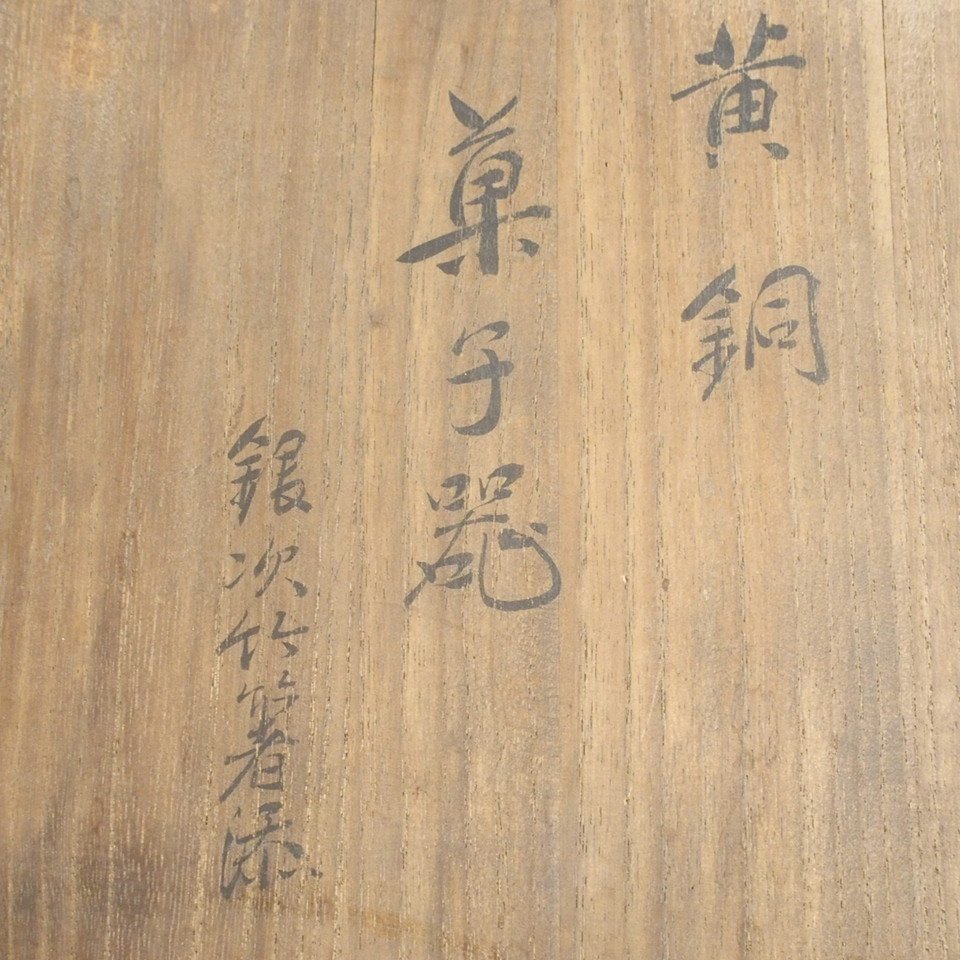 黄銅
菓子器
銀次竹箸添